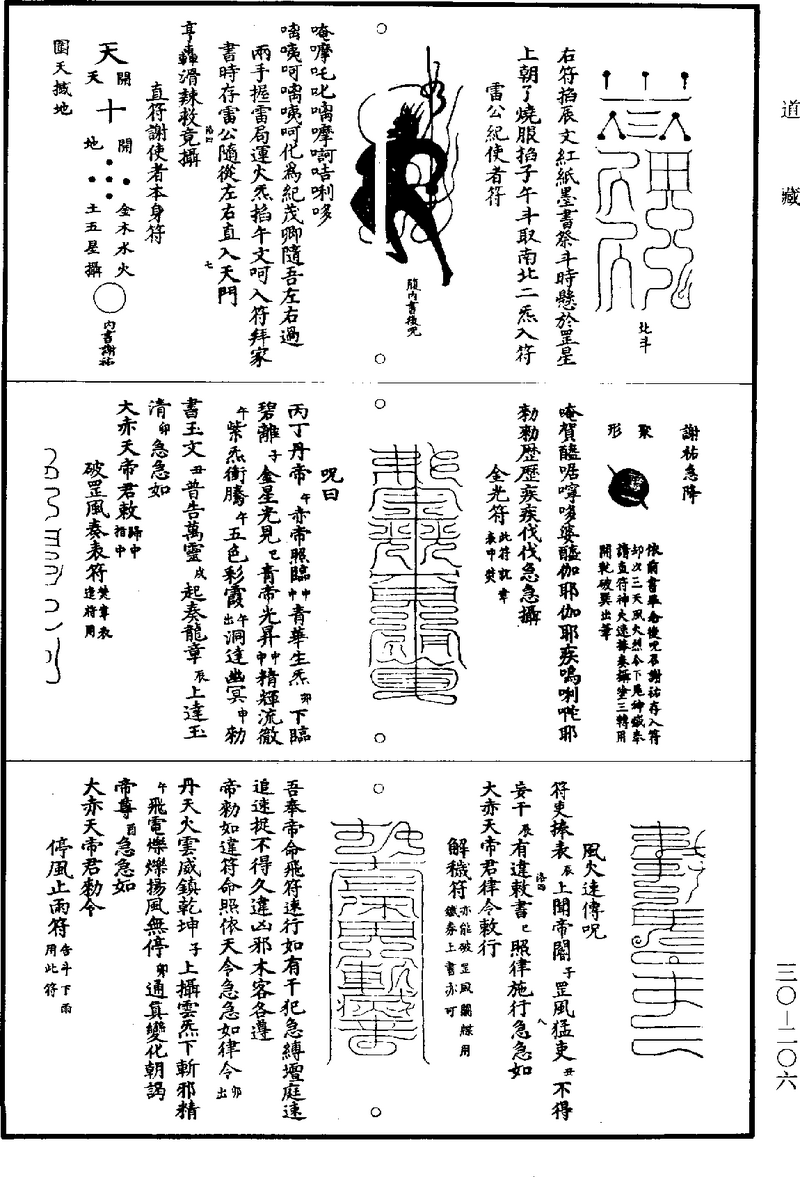 道藏
北斗
右符掐辰文紅紙墨書祭斗時懸於罡星
上朝了燒服掐子午斗取南北二炁入符
雷公紀使者符
腹內書後咒
唵摩吒叱㗙摩訶咭唎哆
㗙咦呵㗙咦呵化為紀茂卿隨吾左右過
兩手握雷局運火炁掐午文呵入符拜家
書時存雷公隨從左右直入天門
亨轟滑辣敕竟攝
直符謝使者本身符
天
開
天
十
開
地
金木水火
土五星攝
內書謝祐
圓天撼地
謝祐急降
聚
形
開乾破巽出筆
唵賀醯啒嚀哆婆醯伽耶伽耶疾嗚唎㘑耶
勑勑歷歷疾疾伐伐急急攝
金光符
此符訖章
表中焚
咒曰
丙丁丹帝午赤帝照臨申青華生炁卯下臨
碧離子金星光見巳青帝光昇申精輝流徹
午紫炁衝騰午五色彩霞午出洞達幽冥申勑
書玉文丑普告萬靈戌起奏龍章辰上達玉
清卯急急如
大赤天帝君敕歸中指中
破罡風奏表符焚章表造符用
風火速傳咒
符吏捧表辰上聞帝閣子罡風猛吏丑不得
妄干辰有違敕書巳照律施行急急如
大赤天帝君律令敕行
解穢符
亦能破罡風關牒用
鐵券上書亦可
吾奉帝命飛符速行如有干犯急縛壇庭速
追速捉不得久違凶邪木客各遵
帝勑如違符命照依天令急急如律令卯出
丹天火雲威鎮乾坤子上攝雲炁下斬邪精
午飛電爍爍揚風無停卯通真變化朝謁
帝尊酉急急如
大赤天帝君勑令
停風止雨符
告斗下雨
用此符
三〇—二〇六